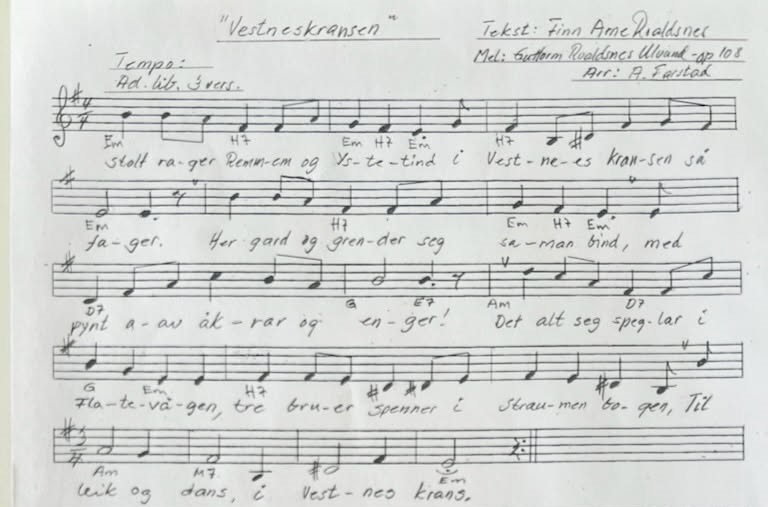 "Vestneskransen"
Tekst: Finn Arne Roaldsnes
Mel: Guttorm Roaldsnes Ulvund - op 108
Arr: A. Farstad
Tempo:
Ad. lib. 3 vers.
4/4
Em H7 Em H7 Em H7
Stolt ra-ger Remm-em og Ys-te-tind i Vest-ne-es kran-sen så
Em H7 Em H7 Em
fa-ger. Her gard og gren-der seg sa-man bind, med
D7 G E7 Am D7
pynt a-av åk-rar og en-ger! Det alt seg speg-lar i
G Em H7
Fla-te-vå-gen, tre bru-er spenner i strau-men bo-gen, Til
3/4
Am H7 Em
leik og dans, i Vest-nes krans.